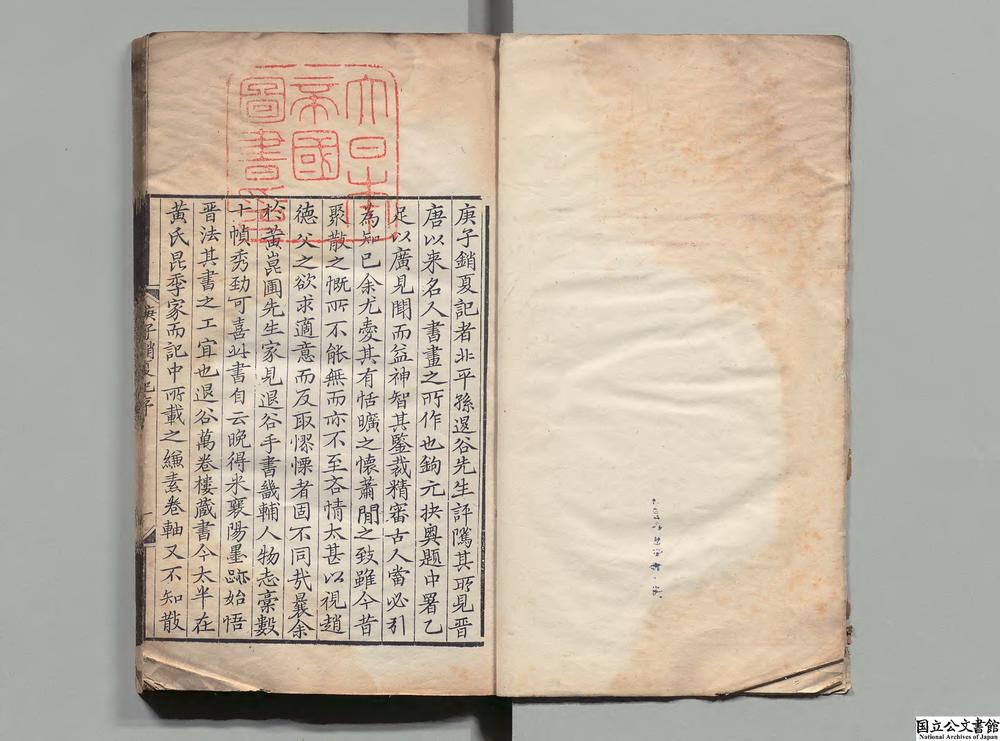 大日本
帝國
圖書印
庚子銷夏記者北平孫退谷先生評騭其所見晋
唐以来名人書畫之所作也鈎元抉奥題中署乙
足以廣見聞而益神智其鑒裁精審古人當必引
為知己余尤愛其有恬曠之懷蕭閒之致雖今昔
聚散之慨所不能無而亦不至吝情太甚以視趙
德父之欲求適意而反取憀慄者固不同哉曩余
於黄崑圃先生家見退谷手書畿輔人物志稾數
十幀秀勁可喜此書自云晚得米襄陽墨跡始悟
晋法其書之工宜也退谷萬卷樓藏書今太半在
黄氏昆季家而記中所載之縑素卷軸又不知散
庚子銷夏記序
一
国立公文書館
National Archives of Japan